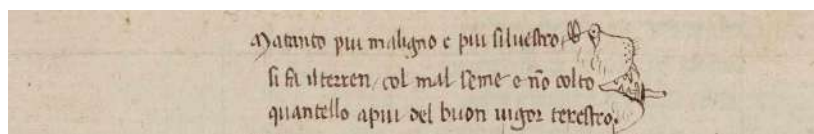 Matanto piu maligno e piu siluestro
si fa ilterren col mal seme e nõ colto
quantello apiu del buon uigor terestro.